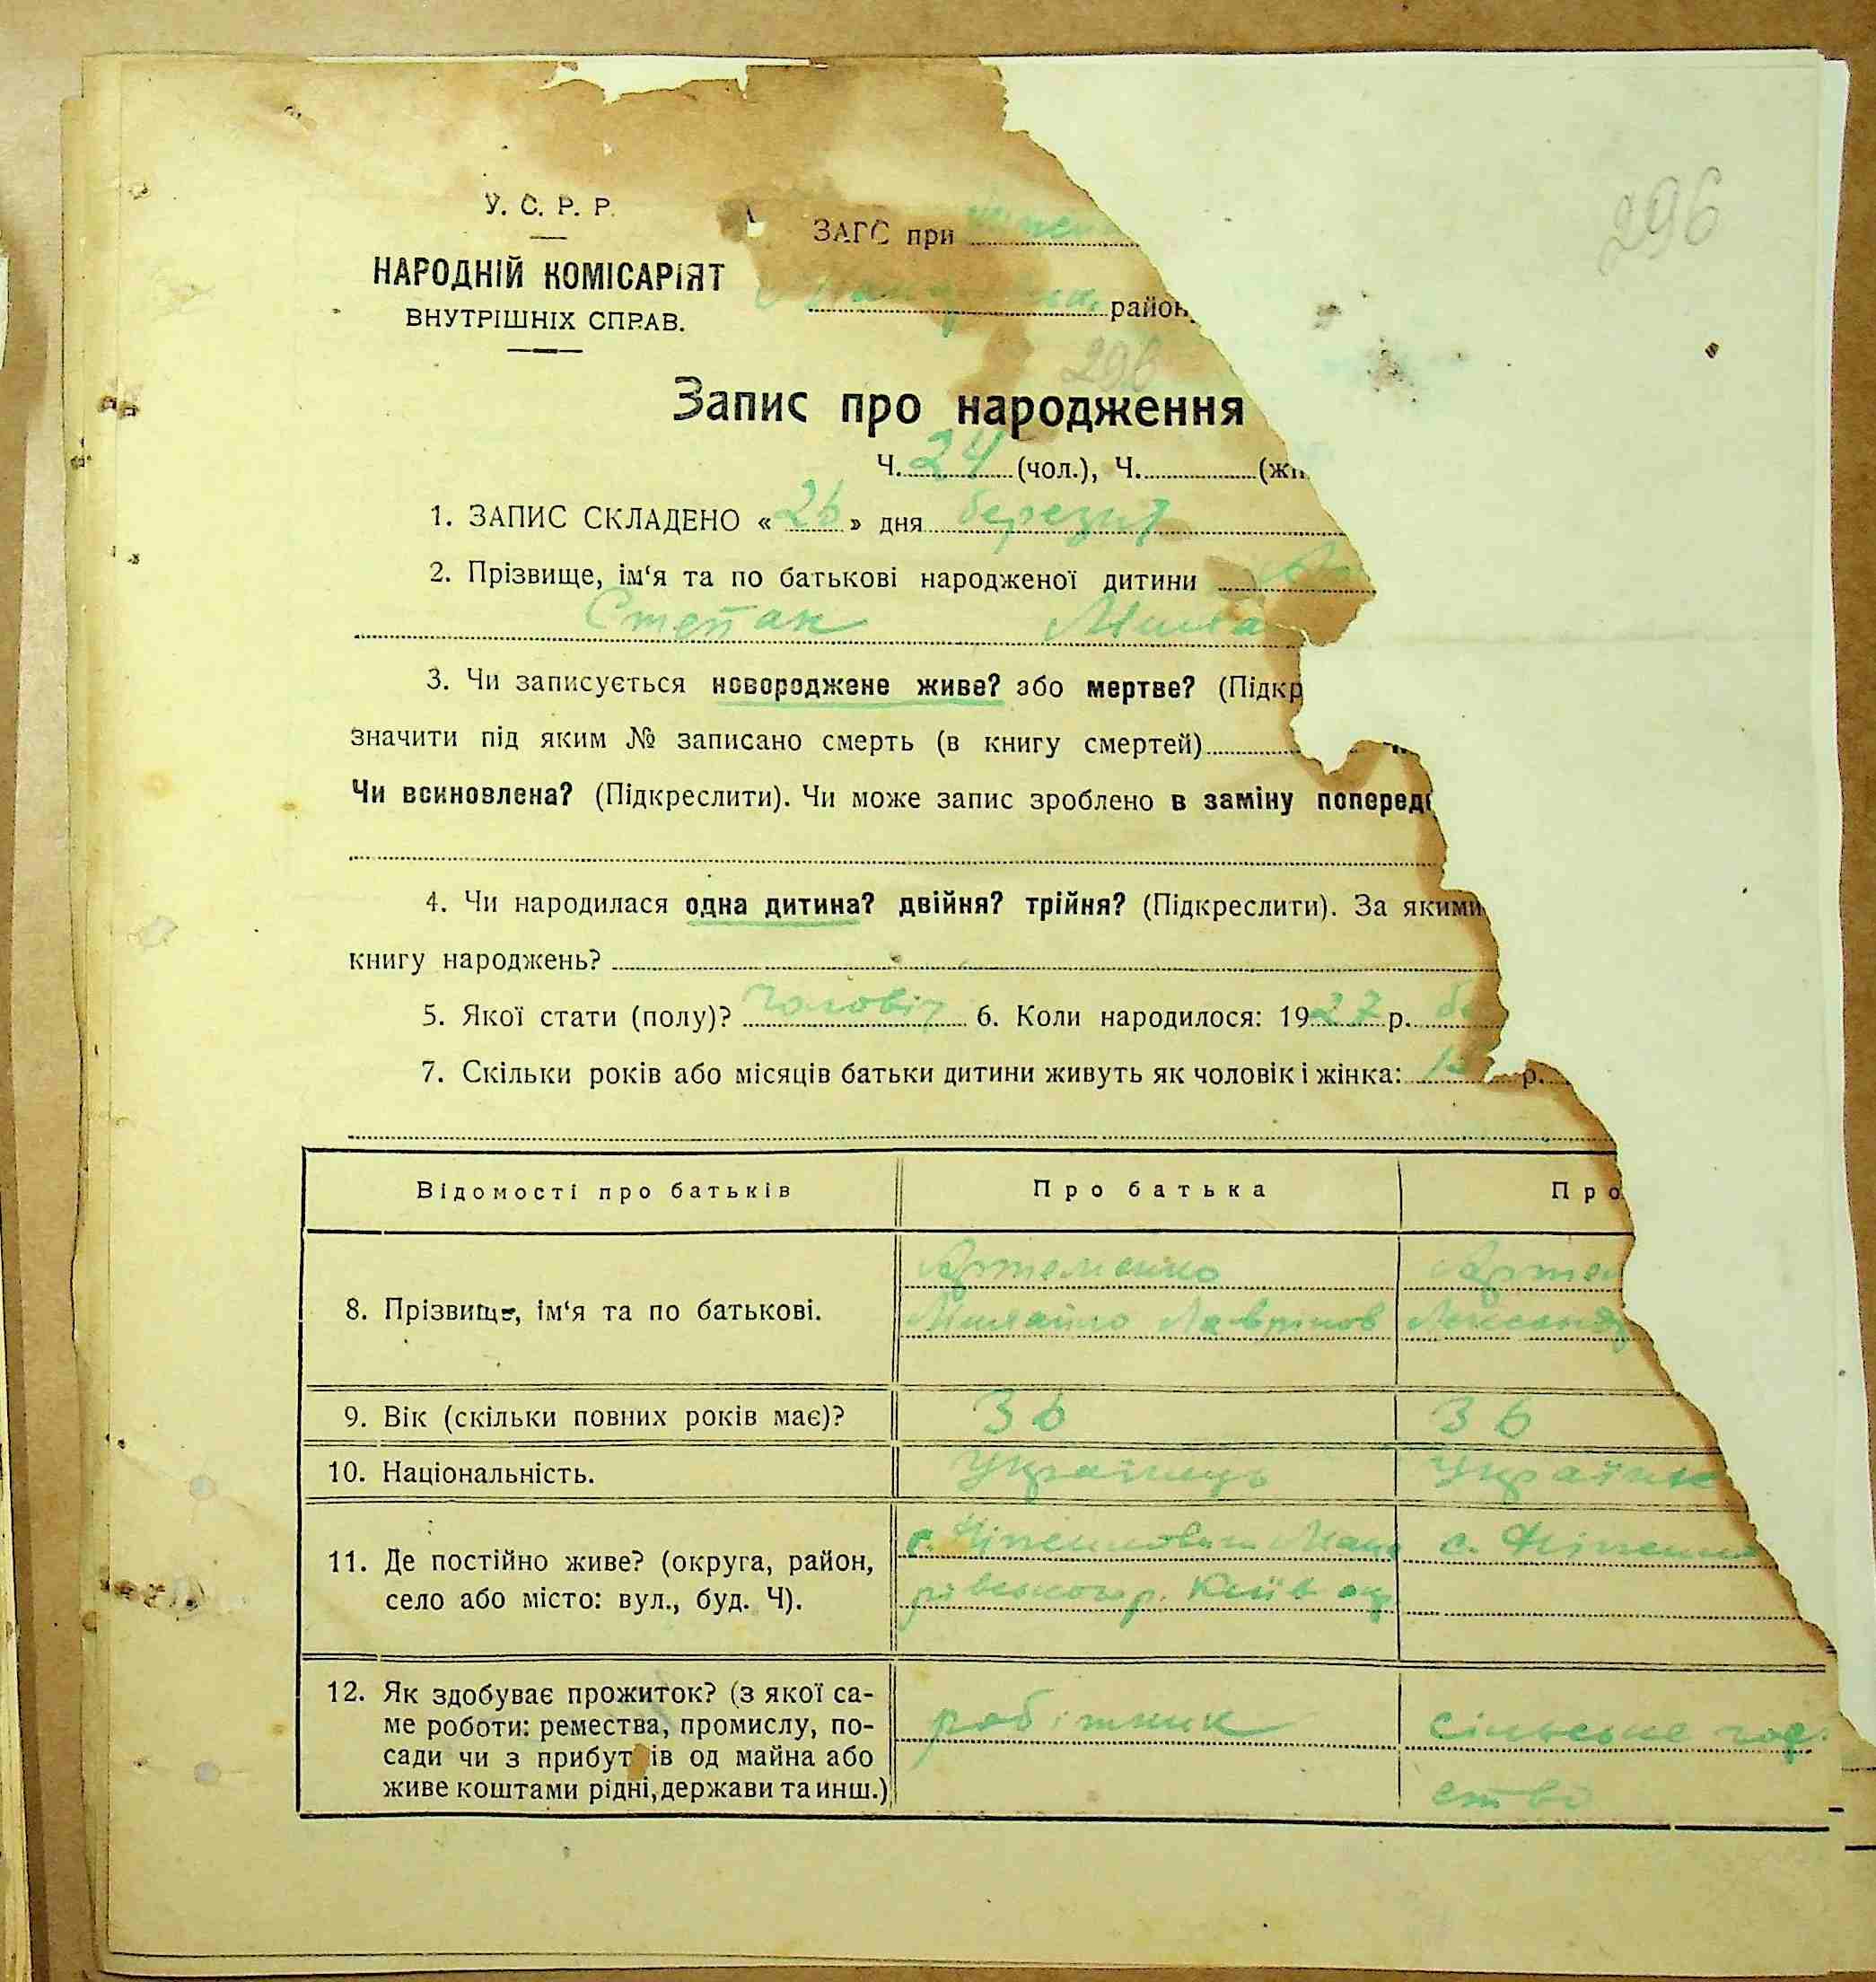 296
У. С. Р. Р.
НАРОДНІЙ КОМІСАРІЯТ
ВНУТРІШНІХ СПРАВ.
ЗАГС при
район
296
Запис про народження
Ч. 24 (чол.), Ч. (жі
1. ЗАПИС СКЛАДЕНО « 26 » дня березня
2. Прізвище, ім‘я та по батькові народженої дитини
Степан Миха
3. Чи записується новороджене живе? або мертве? (Підкр
значити під яким № записано смерть (в книгу смертей)
Чи всиновлена? (Підкреслити). Чи може запис зроблено в заміну поперед
4. Чи народилася одна дитина? двійня? трійня? (Підкреслити). За якими
книгу народжень?
5. Якої стати (полу)? чоловіч 6. Коли народилося: 1927 р. бе
7. Скільки років або місяців батьки дитини живуть як чоловік і жінка: р.
Відомості про батьків Про батька Про
8. Прізвище, ім‘я та по батькові. Артеменко Артем
Михайло Лаврінов Лександр
9. Вік (скільки повних років має)? 36 36
10. Національність. Українець Українк
11. Де постійно живе? (округа, район,
село або місто: вул., буд. Ч). с. Мака с.
рівського р. Київ окр
12. Як здобуває прожиток? (з якої са-
ме роботи: ремества, промислу, по-
сади чи з прибут ів од майна або
живе коштами рідні, держави та инш.) робітник сільське госп
ство